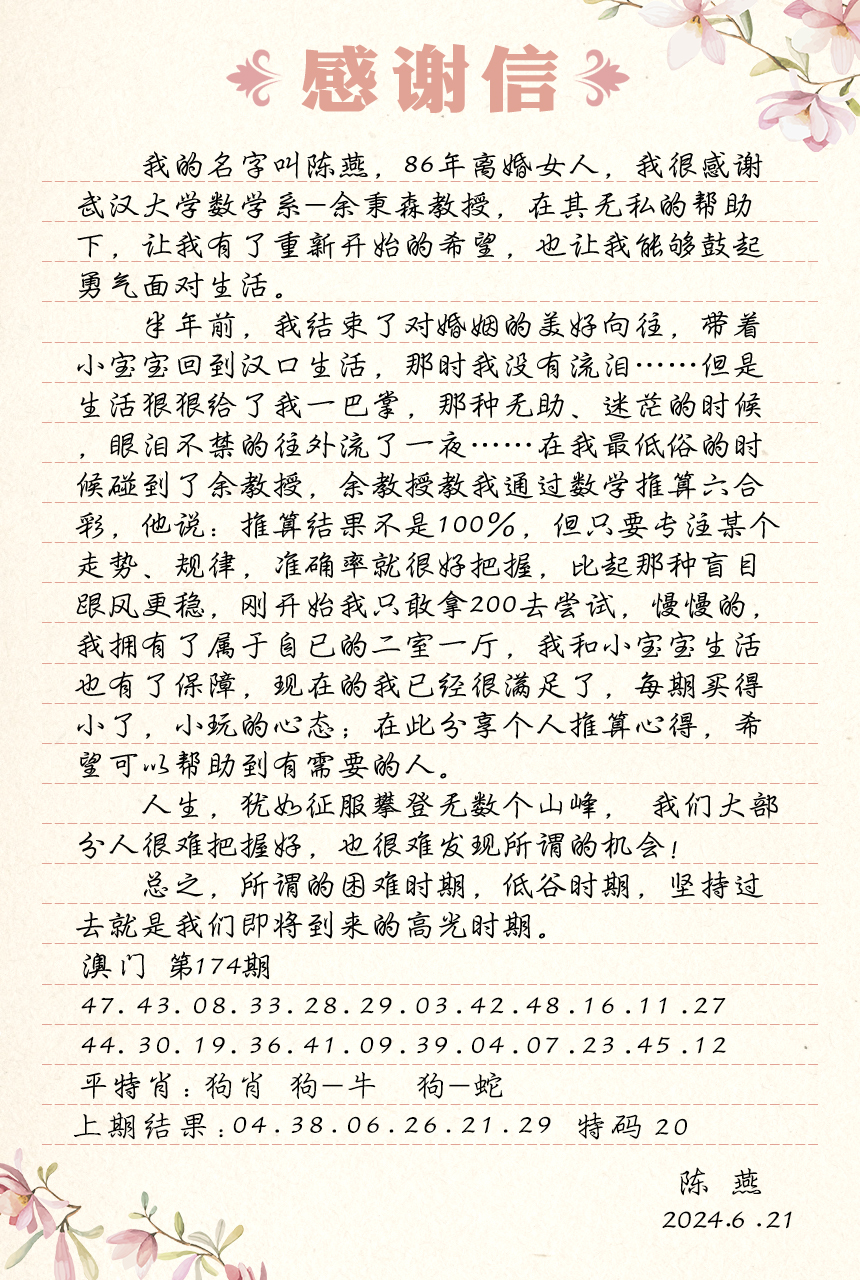 感谢信
我的名字叫陈燕，86年离婚女人，我很感谢
武汉大学数学系—余秉森教授，在其无私的帮助
下，让我有了重新开始的希望，也让我能够鼓起
勇气面对生活。
半年前，我结束了对婚姻的美好向往，带着
小宝宝回到汉口生活，那时我没有流泪……但是
生活狠狠给了我一巴掌，那种无助、迷茫的时候
，眼泪不禁的往外流了一夜……在我最低俗的时
候碰到了余教授，余教授教我通过数学推算六合
彩，他说：推算结果不是100%，但只要专注某个
走势、规律，准确率就很好把握，比起那种盲目
跟风更稳，刚开始我只敢拿200去尝试，慢慢的，
我拥有了属于自己的二室一厅，我和小宝宝生活
也有了保障，现在的我已经很满足了，每期买得
小了，小玩的心态；在此分享个人推算心得，希
望可以帮助到有需要的人。
人生，犹如征服攀登无数个山峰， 我们大部
分人很难把握好，也很难发现所谓的机会！
总之，所谓的困难时期，低谷时期，坚持过
去就是我们即将到来的高光时期。
澳门 第174期
47.43.08.33.28.29.03.42.48.16.11.27
44.30.19.36.41.09.39.04.07.23.45.12
平特肖：狗肖 狗—牛 狗—蛇
上期结果：04.38.06.26.21.29 特码 20
陈 燕
2024.6.21